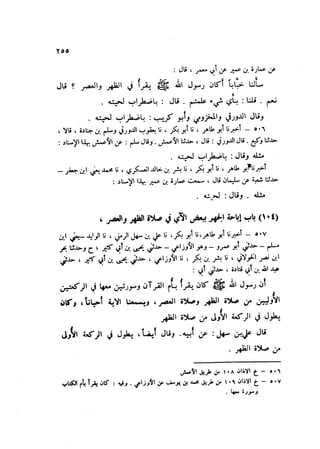 ٢٥٥
عن عمارة بن عمير عن أبي معمر ، قال :
سألنا خباباً أكان رسول الله ﷺ يقرأ في الظهر والعصر ؟ قال
نعم . قلنا : بأي شيء علمتم . قال : باضطراب لحيته .
وقال الدورقي والمخزومي وأبو كريب : باضطراب لحيته .
٥٠٦ – أخبرنا أبو طاهر ، نا أبو بكر ، نا يعقوب الدورقي وسلم بن جنادة ، قالا ،
حدثنا وكيع . قال الدورقي : قال ، حدثنا الأعمش . وقال سلم : عن الأعمش بهذا الإسناد :
مثله وقال : باضطراب لحيته .
أخبرنا أبو طاهر ، نا أبو بكر ، نا بشر بن خالد العسكري ، نا محمد يعني ابن جعفر –
حدثنا شعبة عن سليمان قال ، سمعت عمارة بن عمير بهذا الإسناد :
مثله . وقال : لحيته .
(١٠٤) باب إباحة الجهر ببعض الآي في صلاة الظهر والعصر ،
٥٠٧ – أخبرنا أبو طاهر ، نا أبو بكر ، نا علي بن سهل الرملي ، نا الوليد – يعني ابن
مسلم – حدثني أبو عمرو – وهو الأوزاعي – حدثني يحيى بن أبي كثير ، ح وحدثنا بحر
ابن نصر الخولاني ، نا بشر بن بكر ، نا الأوزاعي ، حدثني يحيى بن أبي كثير ، حدثني
عبد الله بن أبي قتادة ، حدثني أبي :
أن رسول الله ﷺ كان يقرأ بأم القرآن وسورتين معها في الركعتين
الأوليين من صلاة الظهر وصلاة العصر ، ويسمعنا الآية أحياناً ، وكان
يطول في الركعة الأولى من صلاة الظهر
قال علي بن سهل : عن أبيه . وقال أيضاً ، يطول في الركعة الأولى
من صلاة الظهر .
٥٠٦ – خ الاذان ١٠٨ من طريق الأعمش
٥٠٧ – خ الاذان ١٠٩ من طريق محمد بن يوسف عن الأوزاعي . وفيه : كان يقرأ بأم الكتاب
وسورة معها .